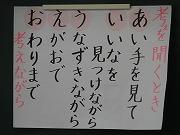 考を聞くとき
あい手を見て
いいなを
見つけながら
うなずきながら
えがおで
おわりまで
考えながら